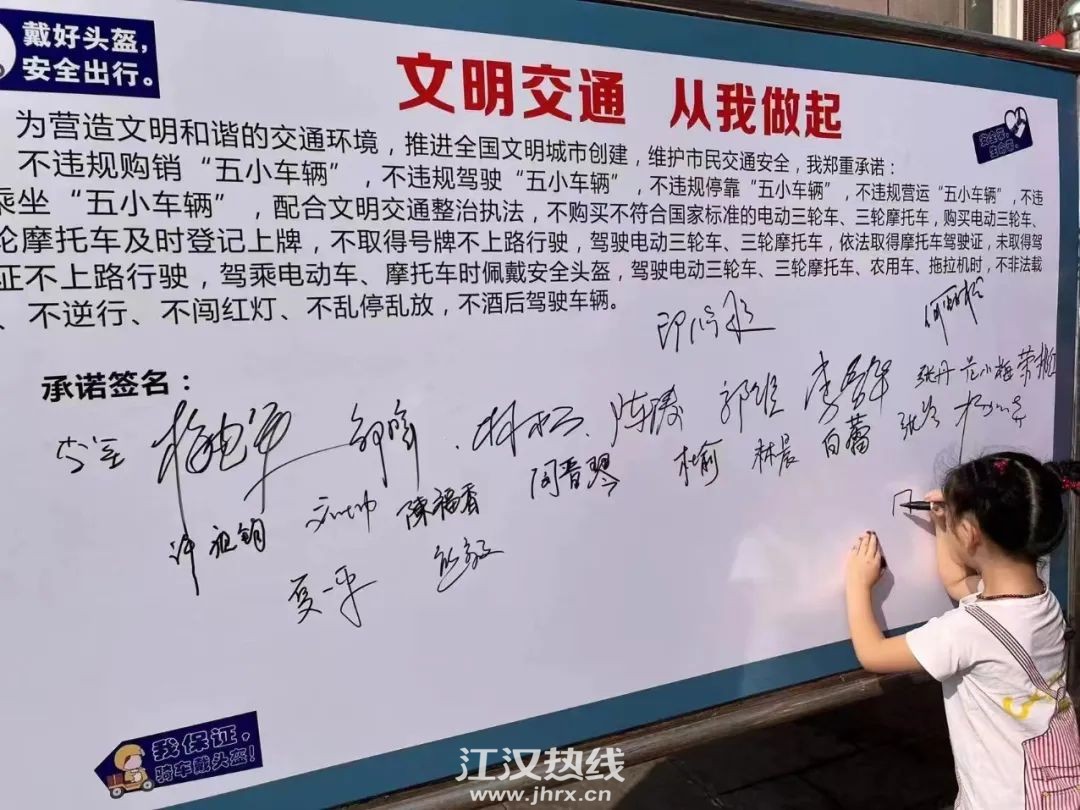 戴好头盔，
安全出行。
文明交通 从我做起
为营造文明和谐的交通环境，推进全国文明城市创建，维护市民交通安全，我郑重承诺：
不违规购销“五小车辆”，不违规驾驶“五小车辆”，不违规停靠“五小车辆”，不违规营运“五小车辆”，不违
乘坐“五小车辆”，配合文明交通整治执法，不购买不符合国家标准的电动三轮车、三轮摩托车，购买电动三轮车、
轮摩托车及时登记上牌，不取得号牌不上路行驶，驾驶电动三轮车、三轮摩托车，依法取得摩托车驾驶证，未取得驾
证不上路行驶，驾乘电动车、摩托车时佩戴安全头盔，驾驶电动三轮车、三轮摩托车、农用车、拖拉机时，不非法载
、不逆行、不闯红灯、不乱停乱放，不酒后驾驶车辆。
承诺签名：
张丹 范小梅
林松 陈涛 郭维
周晋琴 林晨 白蕾
许祖钥 陳福香
夏一平
我保证，
骑车戴头盔！
江汉热线
www.jhrx.cn